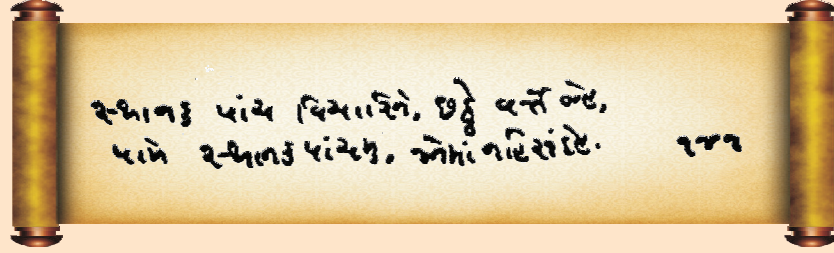 સ્થાનક પાંચ વિચારિને, છઠ્ઠે વર્ત્તે જેહ,
પામે સ્થાનક પાંચમુ, એમાં નહિ સંદેહ. ૧૪૧